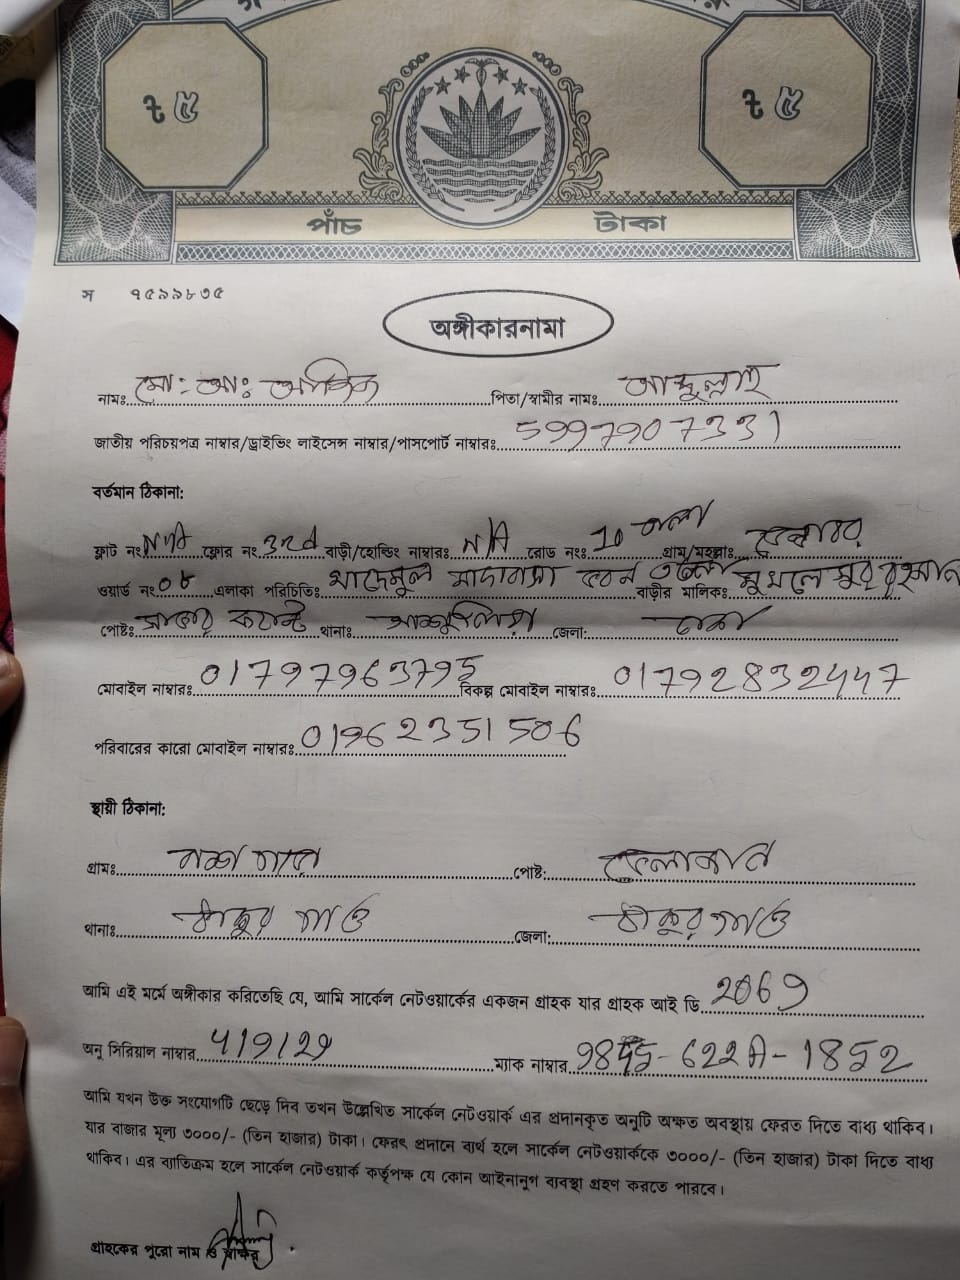 ৳ ৫ ৳ ৫
পাঁচ টাকা
স ৭৫৯৯৮৩৫
অঙ্গীকারনামা
নামঃ মো: আঃ পিতা/স্বামীর নামঃ আব্দুল্লাহ
জাতীয় পরিচয়পত্র নাম্বার/ড্রাইভিং লাইসেন্স নাম্বার/পাসপোর্ট নাম্বারঃ 5997907331
বর্তমান ঠিকানা:
ফ্লাট নং N/A ফ্লোর নং 3rd বাড়ী/হোল্ডিং নাম্বারঃ N/A রোড নং: 10 তলা গ্রাম/মহল্লাঃ
ওয়ার্ড নং 08 এলাকা পরিচিতিঃ খাদেমুল মাদ্রাসা বাড়ীর মালিকঃ
পোষ্টঃ থানাঃ জেলা: ঢাকা
মোবাইল নাম্বারঃ 01797963795 বিকল্প মোবাইল নাম্বারঃ 01792832447
পরিবারের কারো মোবাইল নাম্বারঃ 01962351506
স্থায়ী ঠিকানা:
গ্রামঃ পোষ্ট:
থানাঃ ঠাকুর গাও জেলা: ঠাকুর গাও
আমি এই মর্মে অঙ্গীকার করিতেছি যে, আমি সার্কেল নেটওয়ার্কের একজন গ্রাহক যার গ্রাহক আই ডি 2069
অনু সিরিয়াল নাম্বার 419/29 ম্যাক নাম্বার - 622A - 1852
আমি যখন উক্ত সংযোগটি ছেড়ে দিব তখন উল্লেখিত সার্কেল নেটওয়ার্ক এর প্রদানকৃত অনুটি অক্ষত অবস্থায় ফেরত দিতে বাধ্য থাকিব।
যার বাজার মূল্য ৩০০০/- (তিন হাজার) টাকা। ফেরৎ প্রদানে ব্যর্থ হলে সার্কেল নেটওয়ার্ককে ৩০০০/- (তিন হাজার) টাকা দিতে বাধ্য
থাকিব। এর ব্যতিক্রম হলে সার্কেল নেটওয়ার্ক কর্তৃপক্ষ যে কোন আইনানুগ ব্যবস্থা গ্রহণ করতে পারবে।
গ্রাহকের পুরো নাম ও স্বাক্ষর